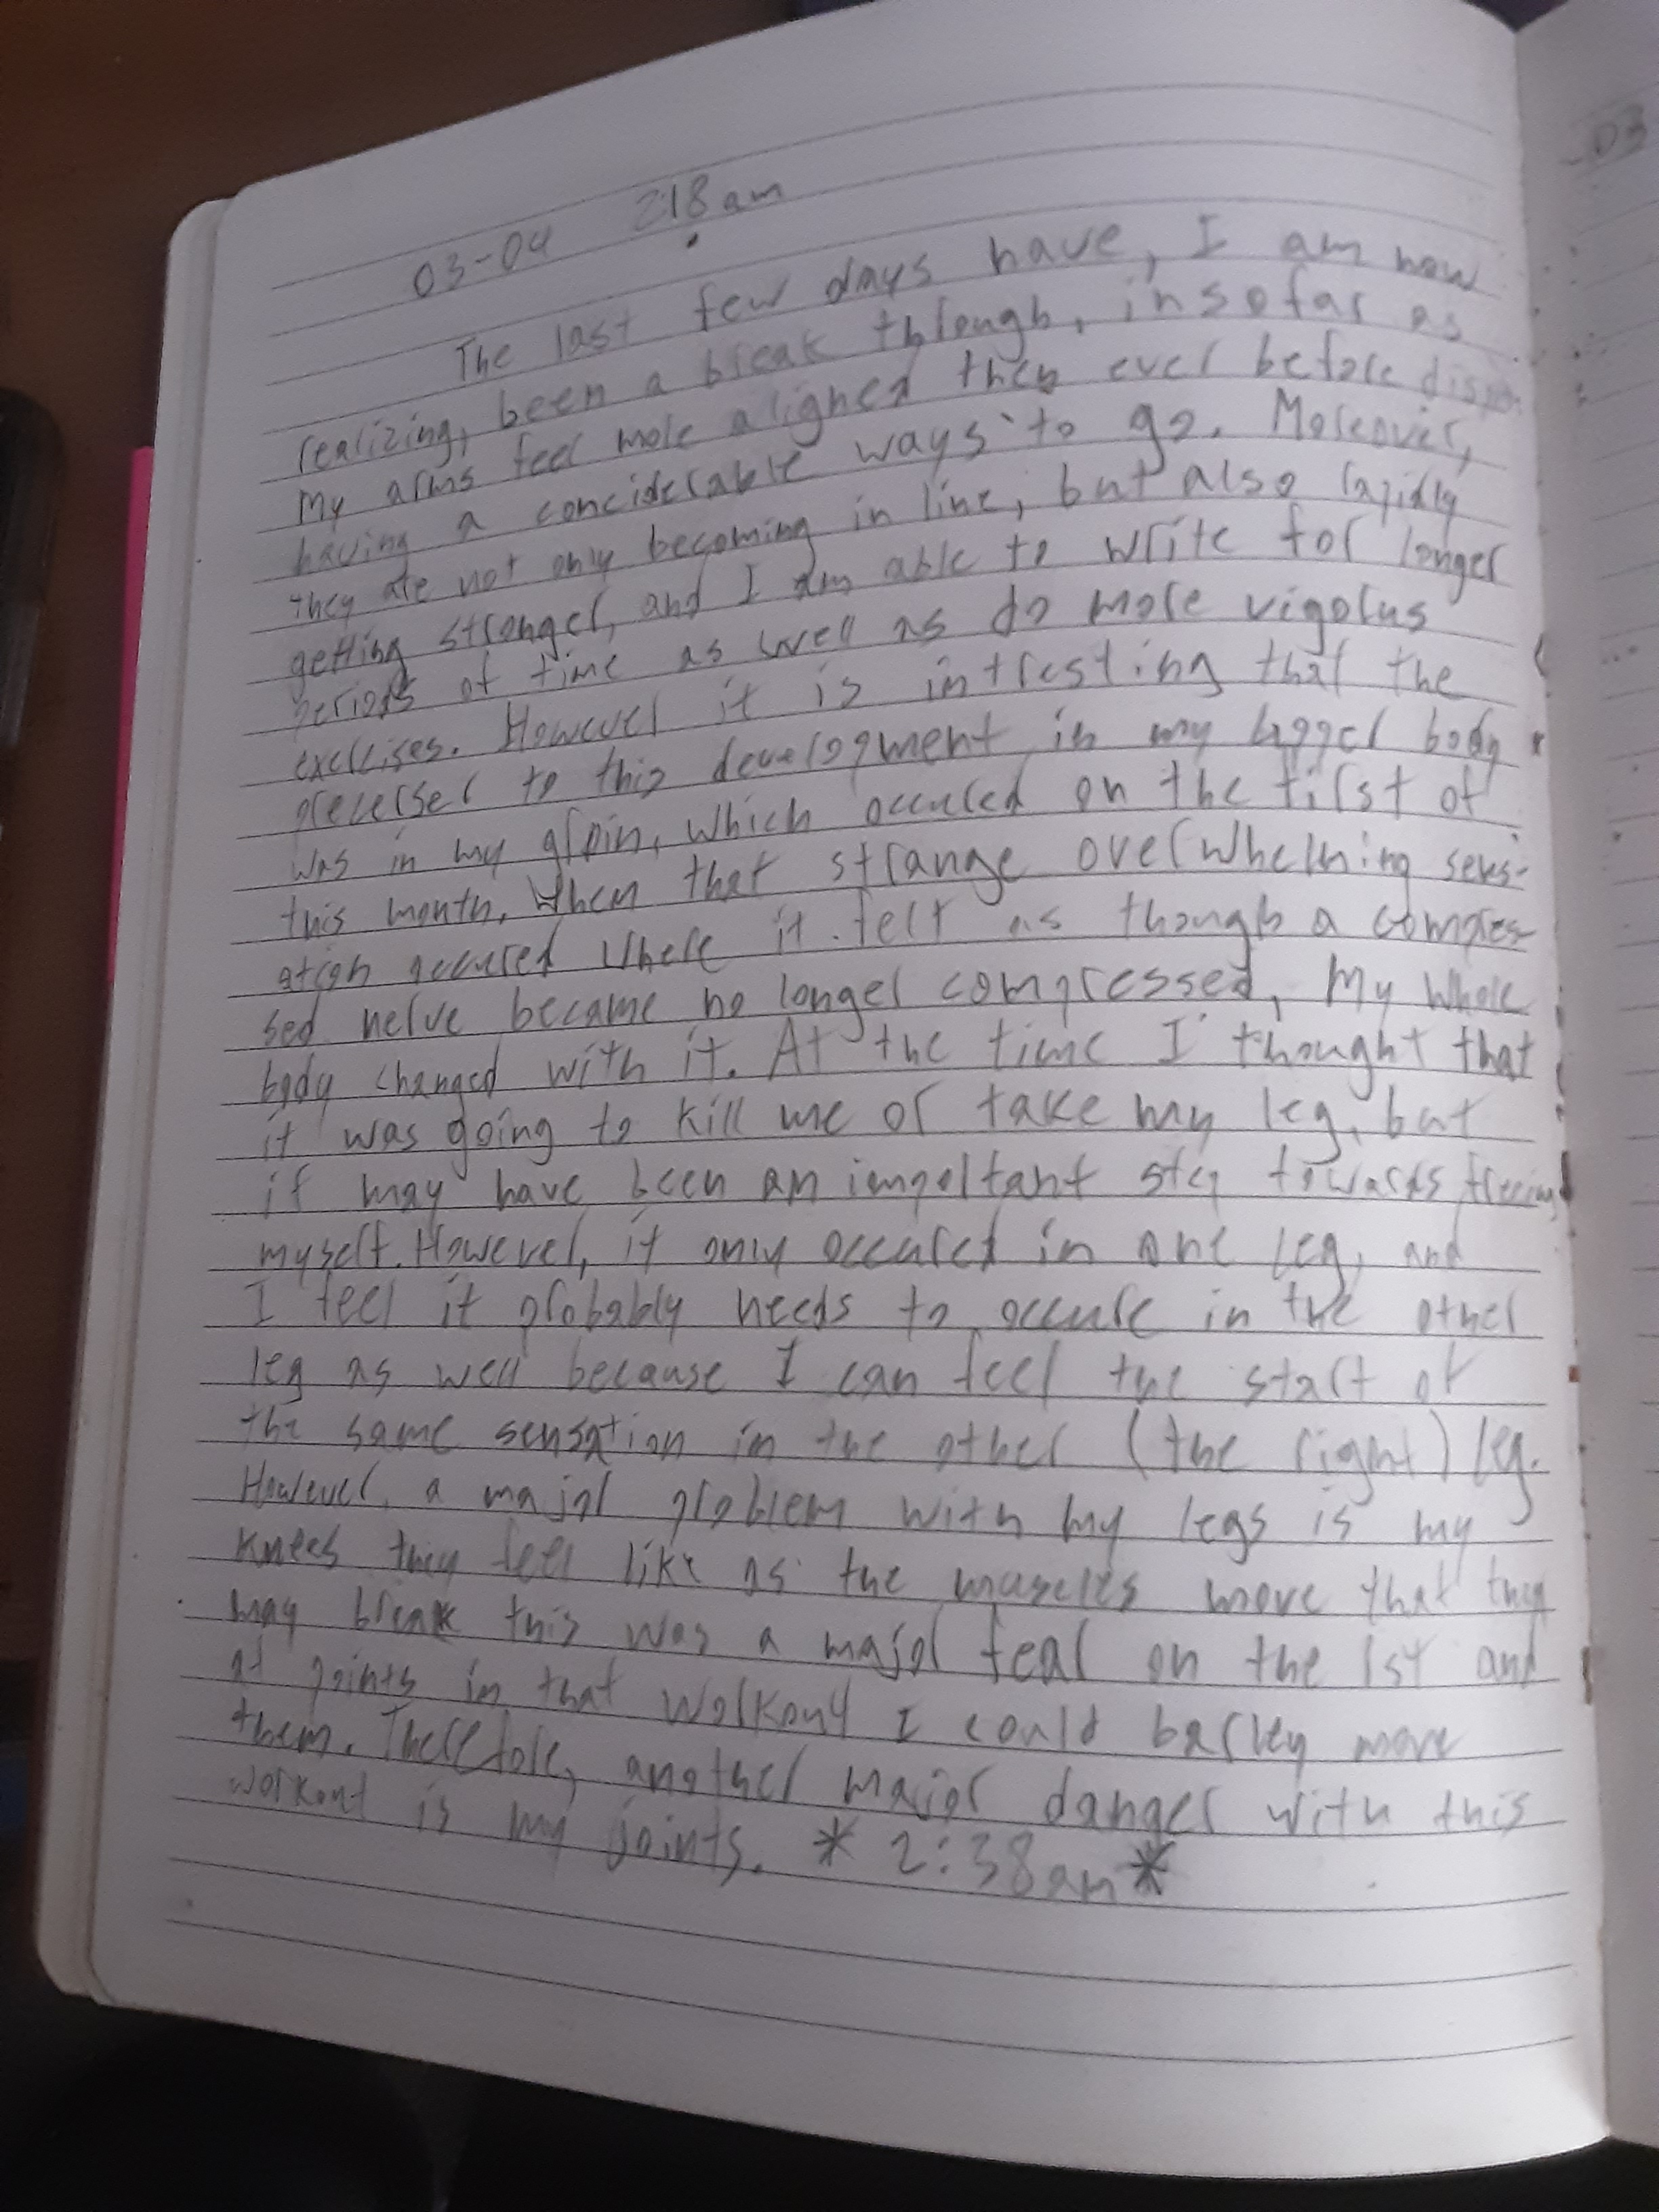 03-04 2:18am
The last few days have, I am now
realizing, been a break through, insofar as
My arms feel more aligned then ever before
having a conciderable ways to go. Moreover,
they are not only becoming in line, but also rapidly
getting stronger, and I am able to write for longer
periods of time as well as do more vigorus
exercises. However it is intresting that the
precurser to this development in my upper body
was in my groin, which occured on the first of
this month. When that strange overwhelming sens-
ation occured where it felt as though a compres-
sed nerve became no longer compressed, My whole
body changed with it. At the time I thought that
it was going to kill me or take my leg, but
it may have been an important step towards freeing
myself. However, it only occured in one leg, and
I feel it probably needs to occure in the other
leg as well because I can feel the start of
the same sensation in the other (the right) leg.
However, a major problem with my legs is my
knees they feel like as the muscles move that they
may break this was a major fear on the 1st and
at points in that workout I could barley move
them. Therefore, another major danger with this
workout is my joints. * 2:38am *
03